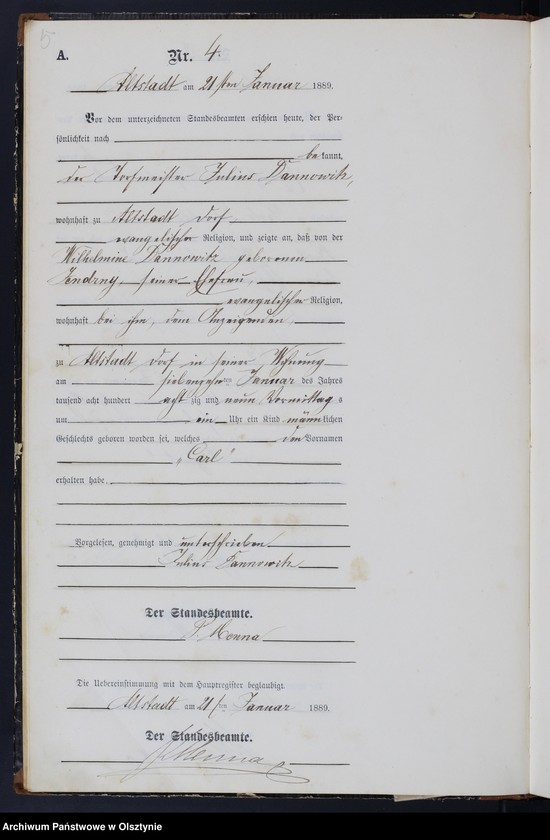 5
A. Nr. 4.
Altstadt am 21 sten Januar 1889.
Vor dem unterzeichneten Standesbeamten erschien heute, der Per-
sönlichkeit nach
be kannt,
der Torfmeister Julius Dannowitz,
wohnhaft zu Altstadt Dorf
evangelischer Religion, und zeigte an, daß von der
Wilhelmine Dannowitz geborenen
Jendrny, seiner Ehefrau,
evangelischer Religion,
wohnhaft bei ihm, dem Anzeigenden,
zu Altstadt Dorf in seiner Wohnung
am siebenzehnten Januar des Jahres
tausend acht hundert acht zig und neun Vormittags
um ein Uhr ein Kind männlichen
Geschlechts geboren worden sei, welches den Vornamen
„Carl“
erhalten habe
Vorgelesen, genehmigt und unterschrieben
Julius Dannowitz
Der Standesbeamte.
Menna
Die Uebereinstimmung mit dem Hauptregister beglaubigt.
Altstadt am 21 ten Januar 1889.
Der Standesbeamte.
Menna
Archiwum Państwowe w Olsztynie